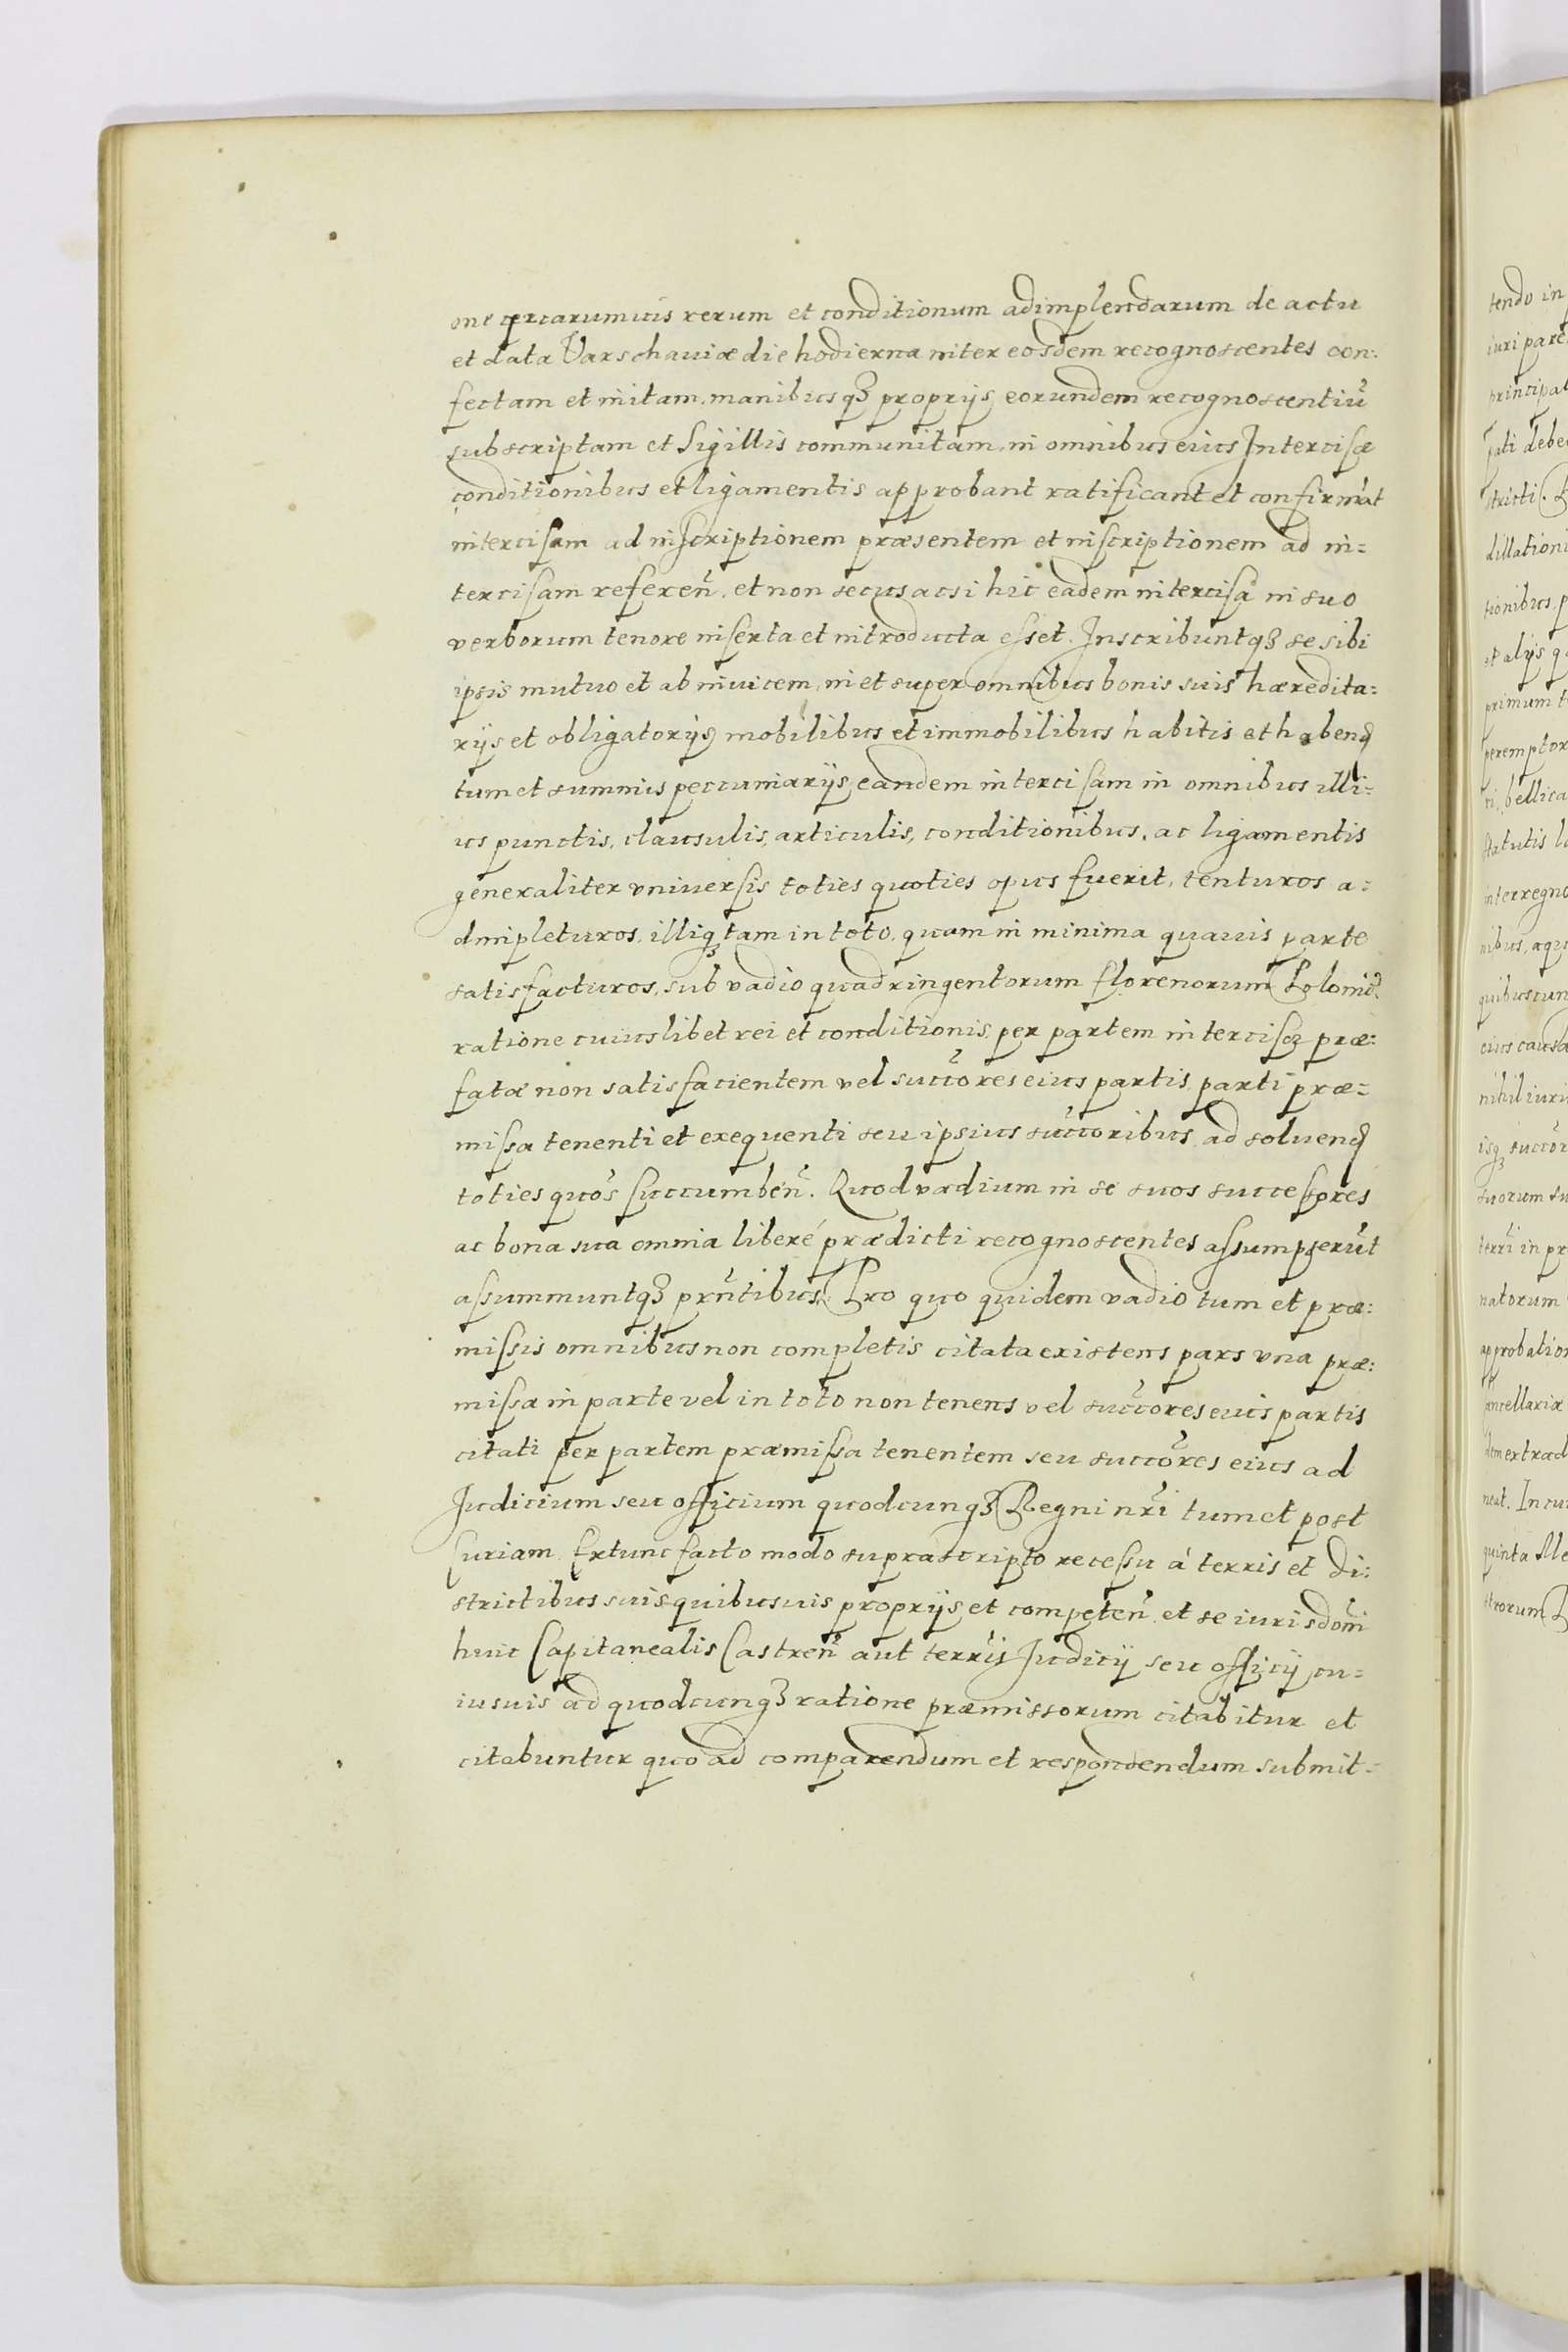 one certarumuis rerum et conditionum adimplendarum de actu
et data Varschauiæ die hodierna inter eosdem recognoscentes con-
fectam et initam, manibusqȝ proprijs eorundem recognoscentiũ
subscriptam et Sigillis communitam, in omnibus eius Intercisæ
conditionibus et ligamentis approbant ratificant et confirmãt
intercisam ad inscriptionem præsentem et inscriptionem ad in=
tercisam refereñ. et non secus acsi hic eadem intercisa in suo
verborum tenore inserta et introducta esset. Inscribuntqȝ se sibi
ipsis mutuo et ab inuicem, in et super omnibus bonis suis hæredita=
rijs et obligatorijs mobilibus et immobilibus habitis et habend
tum et summis pecuniarijs, eandem intercisam in omnibus illi=
us punctis, clausulis, articulis, conditionibus, ac ligamentis
generaliter vniuersis toties quoties opus fuerit, tenturos a=
dimpleturos, illiqȝ tam in toto, quam in minima quauis parte
satisfacturos, sub vadio quadringentorum florenorum Poloni̴c.
ratione cuiuslibet rei et conditionis, per partem intercisæ præ=
fatæ non satisfacientem vel succ̃ores eius partis, parti præ=
missa tenenti et exequenti seu ipsius succ̃oribus, ad soluend
toties quo̴s succumbeñ. Quod vadium in se suos successores
ac bona sua omnia liberé prædicti recognoscentes assumpserũt
assummuntqȝ prñtibus. Pro quo quidem vadio tum et præ=
missis omnibus non completis citata existens pars vna præ=
missa in parte vel in toto non tenens vel succ̃ores eius partis
citati per partem præmissa tenentem seu succ̃ores eius ad
Iudicium seu officium quodcunqȝ Regni nr̃i tum et post
Curiam. Extunc facto modo suprascripto recessu á terris et di=
strictibus suis quibusuis proprijs et competeñ. et se iurisdoñi
huic Capitanealis Castreñ aut terrij̃ Iudicij seu officij cu=
iusuis ad quodcunqȝ ratione præmissorum citabitur et
citabuntur quo ad comparendum et respondendum submit=
tendo in
iuri pare
principal
pati debe
stricti.
dillation
tionibus, p
et alijs q
primum t
peremptor
ri, bellica
statutis l
interregno
nibus, aqu
quibuscun
eius causa
nihil iuri
isqȝ succo̴r
suorum su
terri̴ in pr
natorum
approbation
cancellariæ
dem extrad
neat. In cu
quinta Me
strorum